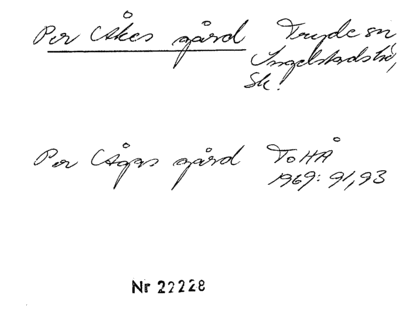 Per Åkes gård Tryde sn
Ingelstads hd,
Sk.
Per Ågas gård ToHÅ
1969: 91,93
Nr 22228